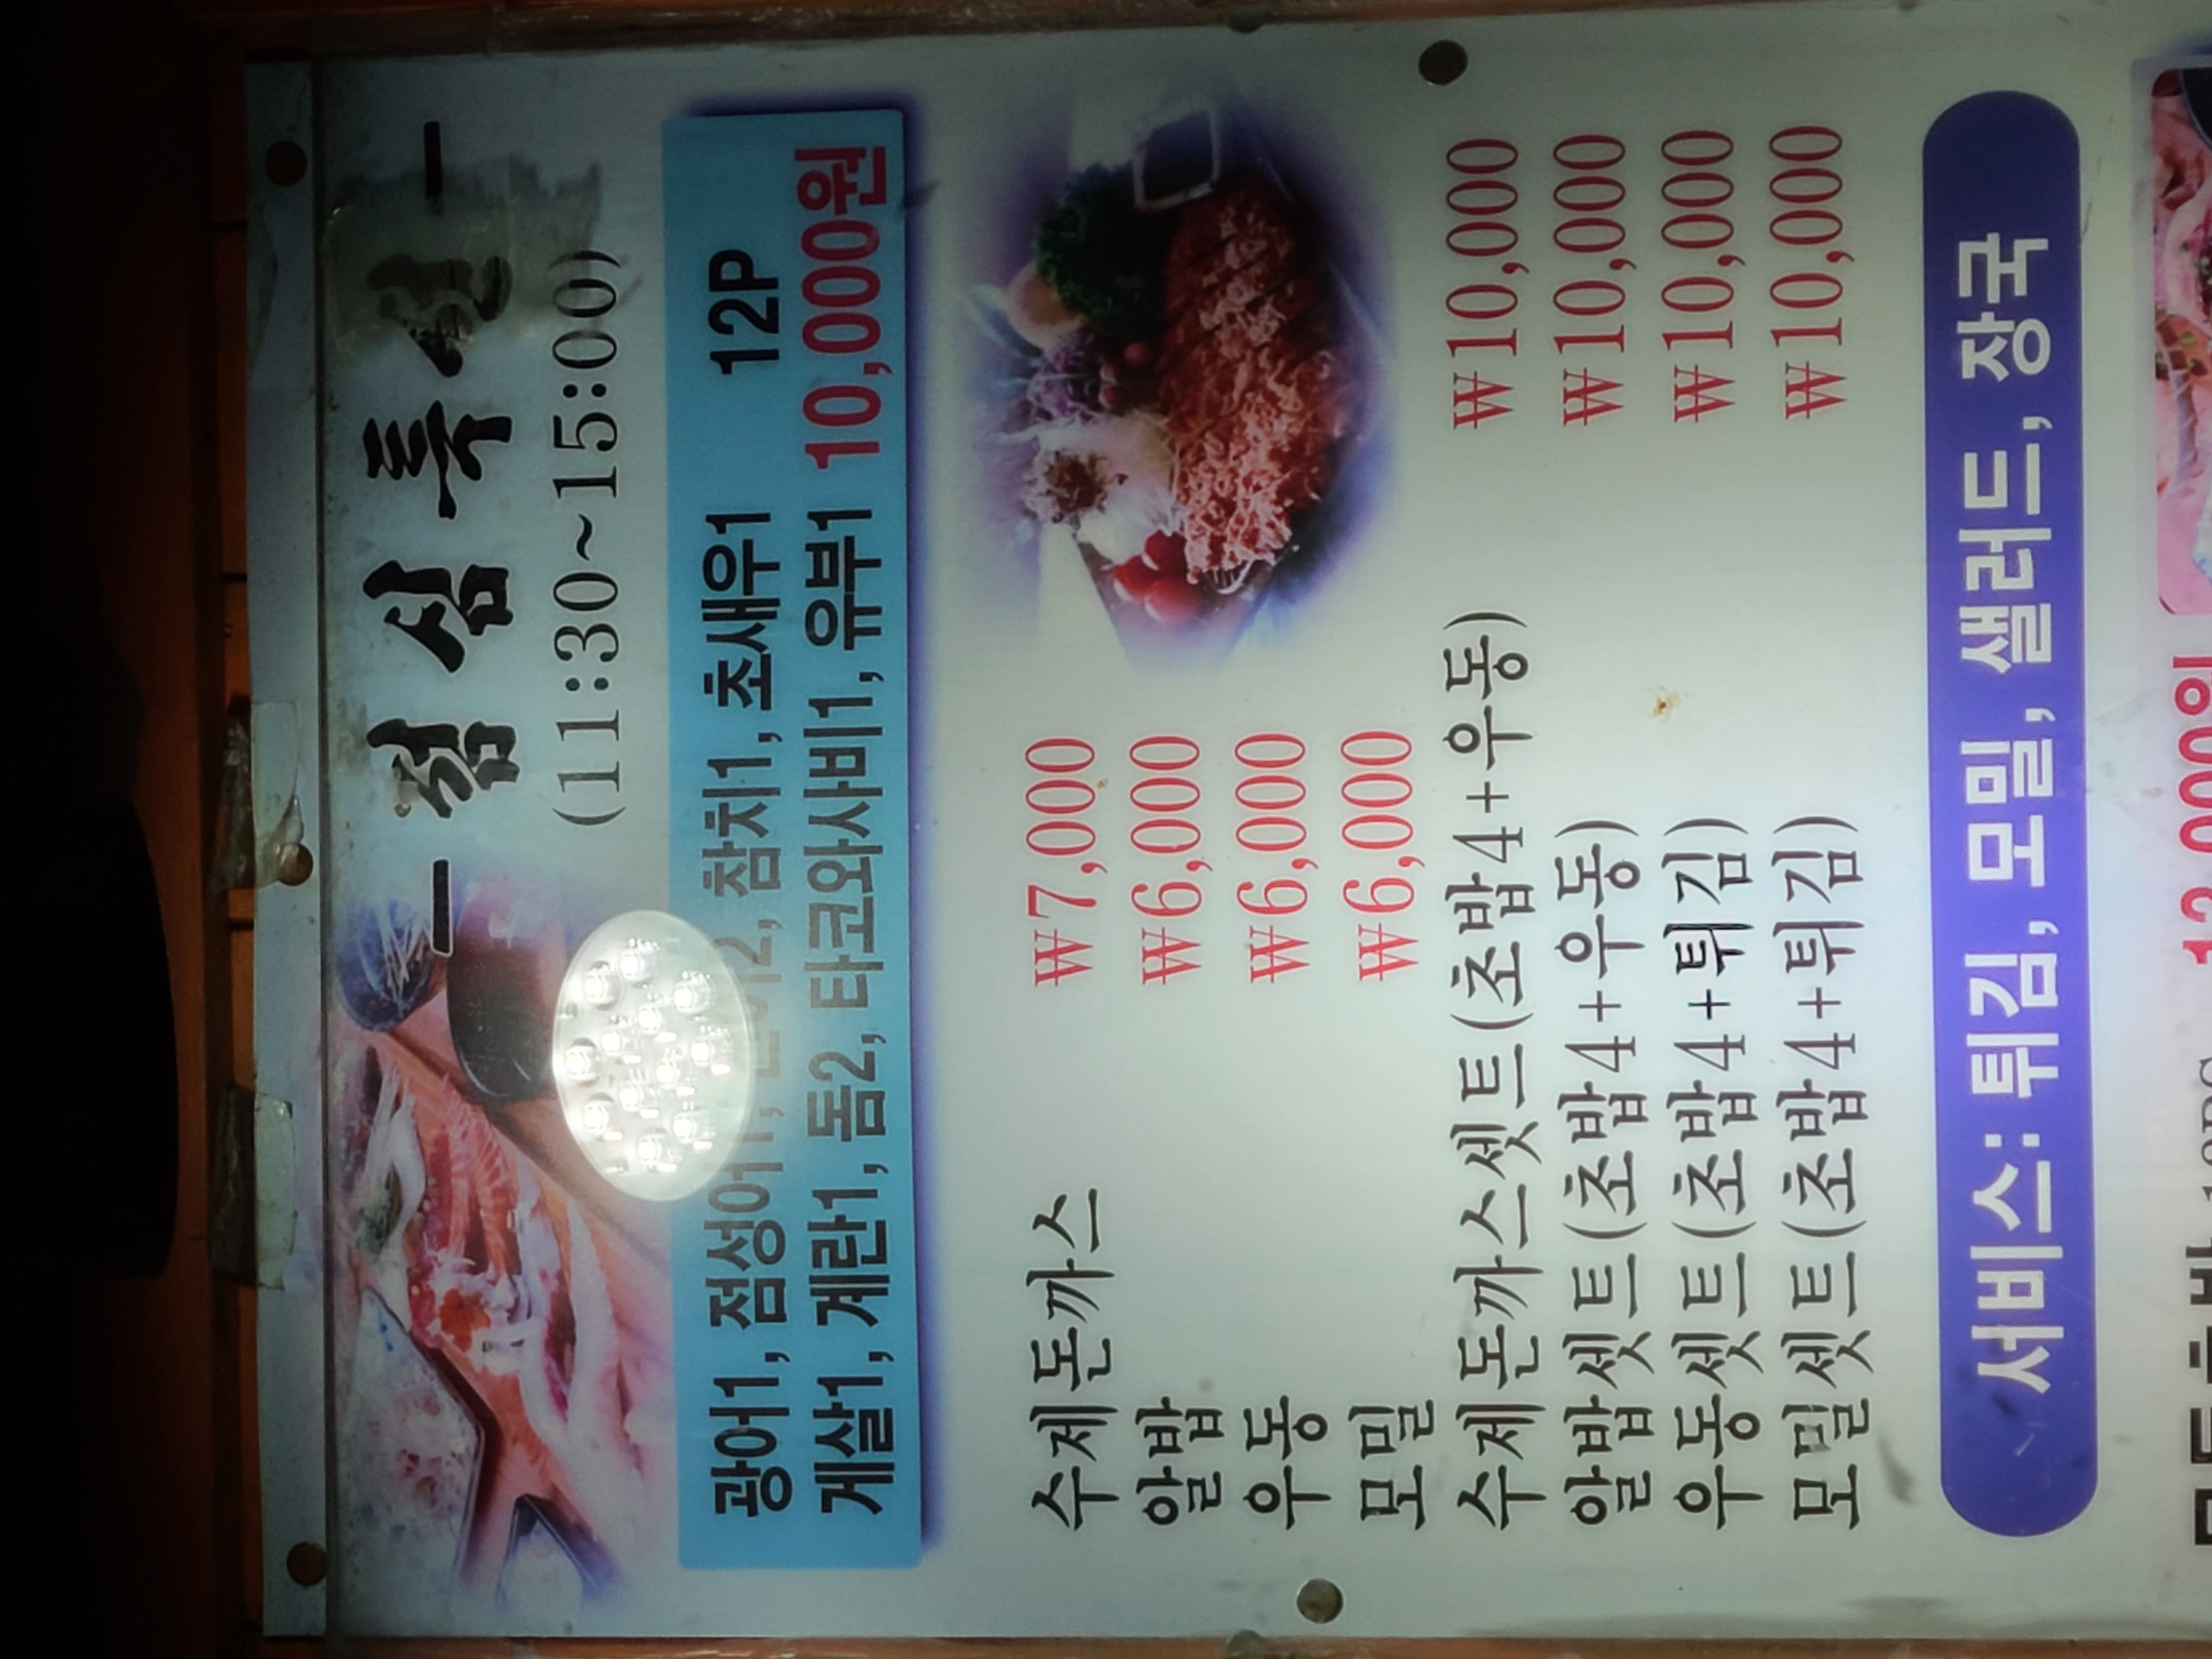 - 점심특선 -
(11:30~15:00)
광어1, 점성어1, 연어2, 참치1, 초새우1 12P
게살1, 계란1, 돔2, 타코와사비1, 유부1 10,000원
수제돈까스 ₩7,000
알밥 ₩6,000
우동 ₩6,000
모밀 ₩6,000
수제돈까스셋트(초밥4+우동) ₩10,000
알밥셋트(초밥4+우동) ₩10,000
우동셋트(초밥4+튀김) ₩10,000
모밀셋트(초밥4+튀김) ₩10,000
서비스: 튀김, 모밀, 샐러드, 장국
12,000원